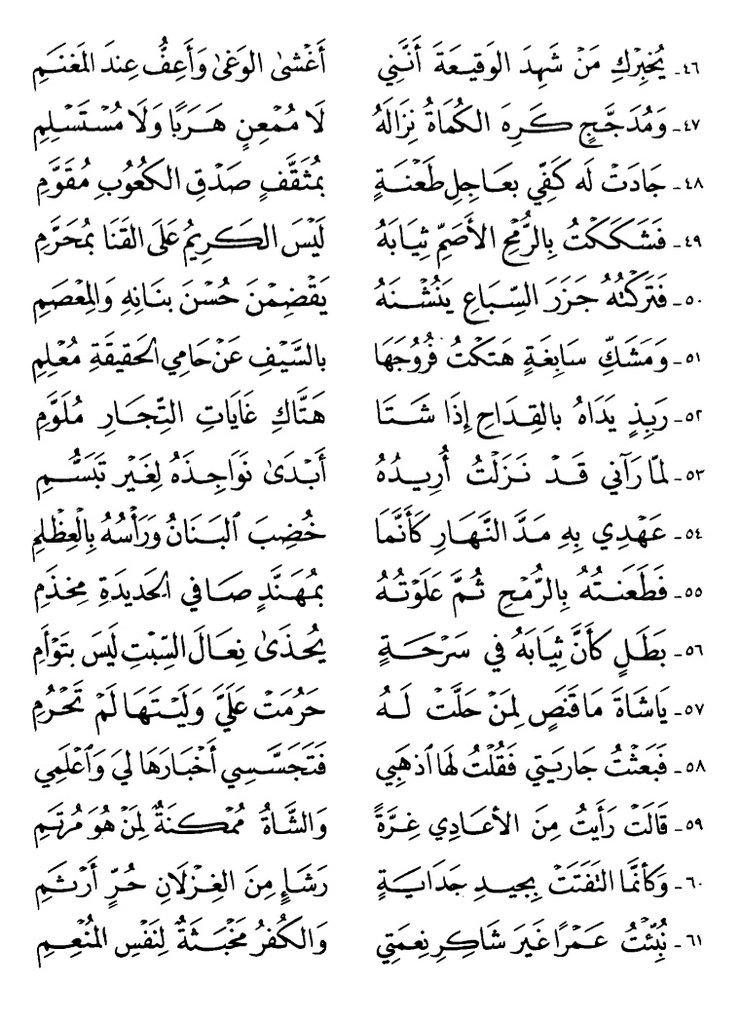 ٤٦ـ يُخْبِرْكِ مَنْ شَهِدَ الوَقِيعَةَ أَنَّنِي أَغْشَى الوَغَى وَأَعِفُّ عِندَ المَغْنَمِ
٤٧ـ وَمُدَجَّجٍ كَرِهَ الكُمَاةُ نِزَالَهُ لَا مُمْعِنٍ هَرَبًا وَلَا مُسْتَسْلِمِ
٤٨ـ جَادَتْ لَه كَفِّي بعَاجِلِ طَعْنَةٍ بمُثَقَّفٍ صَدْقِ الكُعُوبِ مُقَوَّمِ
٤٩ـ فَشَكَكْتُ بِالرُّمْحِ الأَصَمِّ ثِيَابَهُ لَيْسَ الكَرِيمُ عَلَى القَنَا بمُحَرَّمِ
٥٠ـ فَتَرَكْتُهُ جَزَرَ السِّبَاعِ يَنُشْنَهُ يَقْضِمْنَ حُسْنَ بنَانِهِ وَالمِعْصَمِ
٥١ـ وَمَشَكِّ سَابِغَةٍ هَتَكْتُ فُرُوجَهَا بالسَّيْفِ عَنْ حَامِي الحَقِيقَةِ مُعْلِمِ
٥٢ـ رَبِذٍ يَدَاهُ بالقِدَاحِ إِذَا شَتَا هَتَّاكِ غَايَاتِ التِّجَارِ مُلَوَّمِ
٥٣ـ لمّا رَآنِي قَدْ نَزَلْتُ أُرِيدُهُ أَبْدَى نَوَاجِذَهُ لِغَيْرِ تَبَسُّمِ
٥٤ـ عَهْدِي بِهِ مَدَّ النَّهَارِ كَأَنَّمَا خُضِبَ ٱلبَنَانُ وَرَأْسُهُ بِالْعِظْلِمِ
٥٥ـ فَطَعَنْتُهُ بِالرُّمْحِ ثُمَّ عَلَوْتُهُ بمُهَنَّدٍ صَافِي الحَدِيدَةِ مِخذَمِ
٥٦ـ بَطَلٍ كَأَنَّ ثِيَابَهُ فِي سَرْحَةٍ يُحذَى نِعَالَ السِّبْتِ لَيْسَ بتَوْأَمِ
٥٧ـ يَاشَاةَ مَا قَنَصٍ لِمَنْ حَلَّتْ لَهُ حَرُمَتْ عَلَيَّ وَلَيْتَهَا لَمْ تَحْرُمِ
٥٨ـ فَبَعَثْتُ جَارِيَتِي فَقُلْتُ لهَا ٱذهَبِي فَتَجَسَّسِي أَخْبَارَهَا لِيَ وَٱعْلَمِي
٥٩ـ قَالَتْ رَأَيتُ مِنَ الأعَادِي غِرَّةً وَالشَّاةُ مُمْكنَةٌ لِمَنْ هُوَ مُرْتَمِ
٦٠ـ وَكَأنَّمَا التَفَتَتْ بجِيدِ جَدَايَةٍ رَشَإٍ مِنَ الغِزْلَانِ حُرٍّ أَرْثَمِ
٦١ـ نُبِّئْتُ عَمْرًا غَيرَ شَاكِرِ نِعمَتِي وَالكُفْرُ مَخْبَثَةٌ لِنَفْسِ المُنْعِمِ